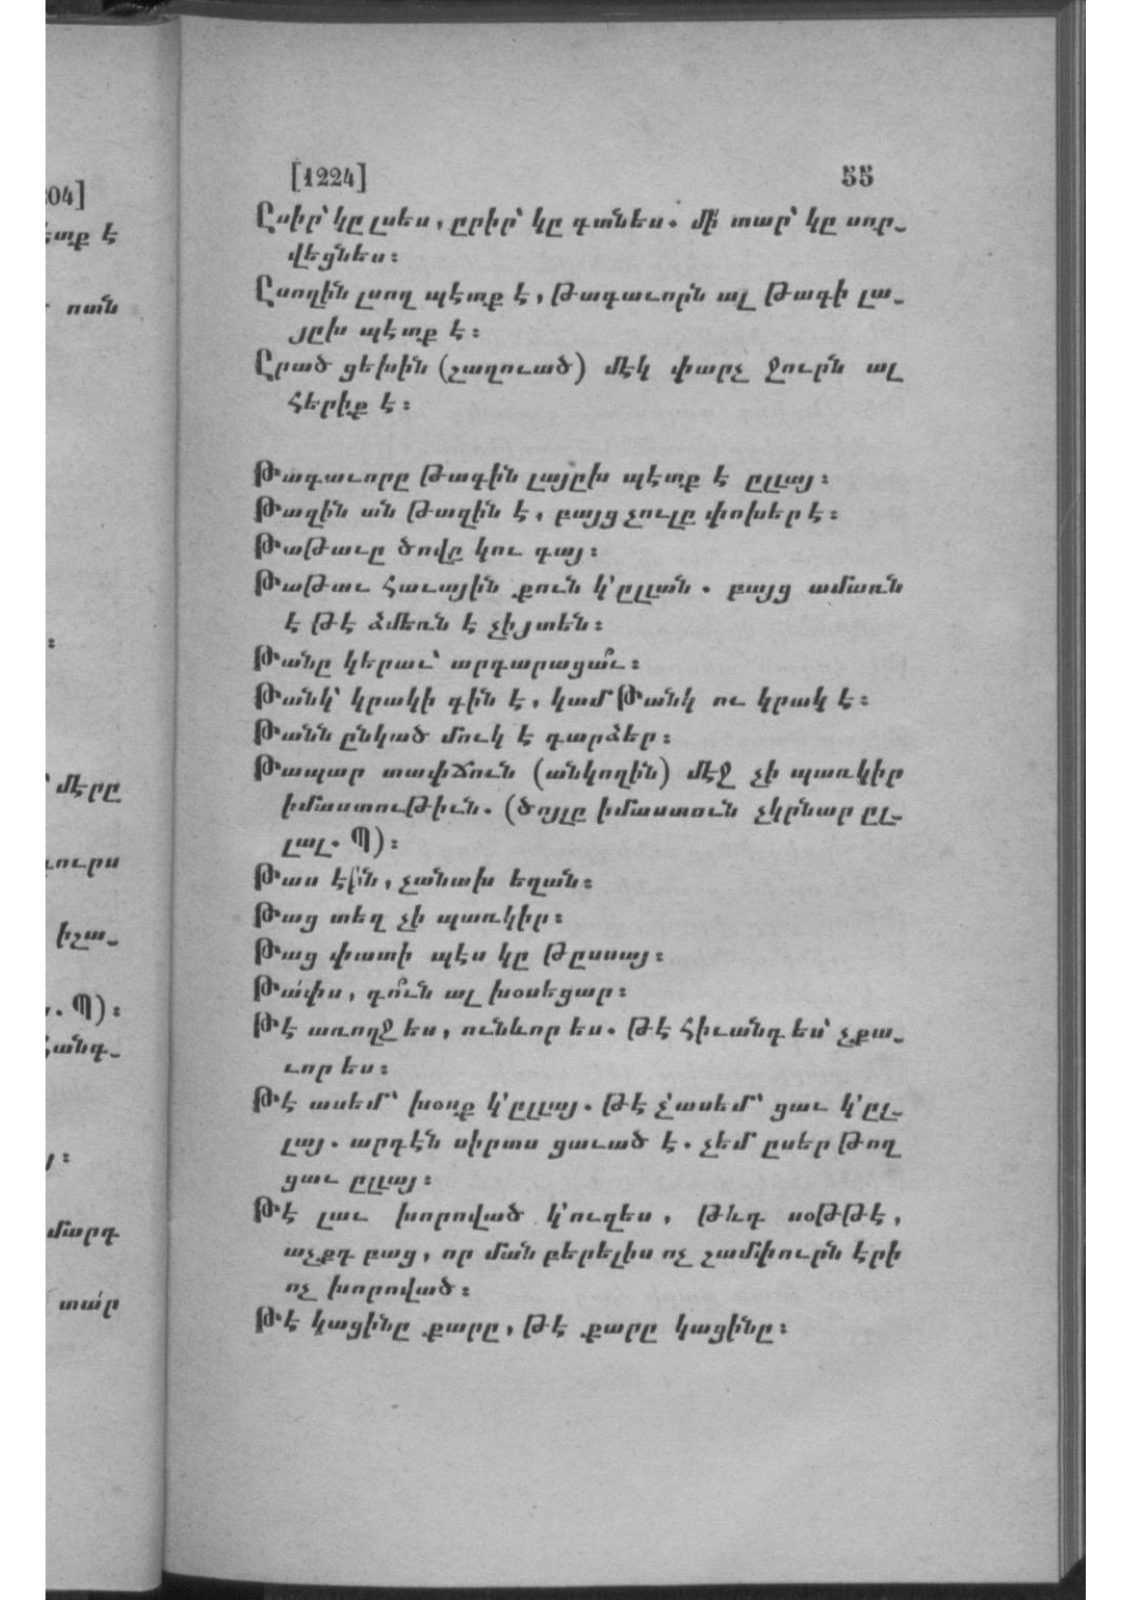 04]
ետք է
ոսն
:
մէրը
ւուրս
իշա֊
. Պ)։
հանգ֊
յ։
մարդ
տա՛ր
[1224] 55
Ըսիր՝ կը լսես, ըրիր՝ կը գտնես. մի՛ տար՝ կը սոր֊
վեցնես։
Ըսողին լսող պէտք է, թագաւորն ալ թագի լա֊
յըխ պէտք է։
Ըրած ցեխին (շաղուած) մէկ փարչ ջուրն ալ
հերիք է։
Թագաւորը թագին լայըխ պէտք է ըլլայ։
Թազին ան թազին է, բայց չուլը փոխեր է։
Թաթաւը ծովը կու գայ։
Թաթաւ հաւային քուն կ՚ըլլան. բայց ամառն
է թէ ձմեռն է չիյտեն։
Թանը կերաւ՝ արդարացա՞ւ։
Թանկ՝ կրակի գին է, կամ Թանկ ու կրակ է։
Թանն ընկած մուկ է դարձեր։
Թապար տափճուն (անկողին) մէջ չի պառկիր
իմաստութիւն. (ծոյլը իմաստուն չկրնար ըլ֊
լալ. Պ)։
Թաս էին, չանախ եղան։
Թաց տեղ չի պառկիր։
Թաց փատի պէս կը թըսսայ։
Թա՛փս, դո՞ւն ալ խօսեցար։
Թէ առողջ ես, ունևոր ես. թէ հիւանդ ես՝ չքա֊
ւոր ես։
Թէ ասեմ՝ խօսք կ՚ըլլայ. թէ չ՚ասեմ՝ ցաւ կ՚ըլ֊
լայ. արդէն սիրտս ցաւած է. չեմ ըսեր թող
ցաւ ըլլայ։
Թէ լաւ խորոված կ՚ուզես, թևդ սօթթէ,
աչքդ բաց, որ ման բերելիս ոչ շամփուրն էրի
ոչ խորոված։
Թէ կացինը քարը, թէ քարը կացինը։